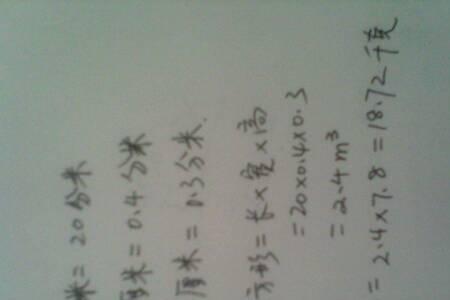 米=20分米
厘米=0.4分米
厘米=0.3分米.
方形=长×宽×高
=20×0.4×0.3
=2.4m³
=2.4×7.8=18.72千克